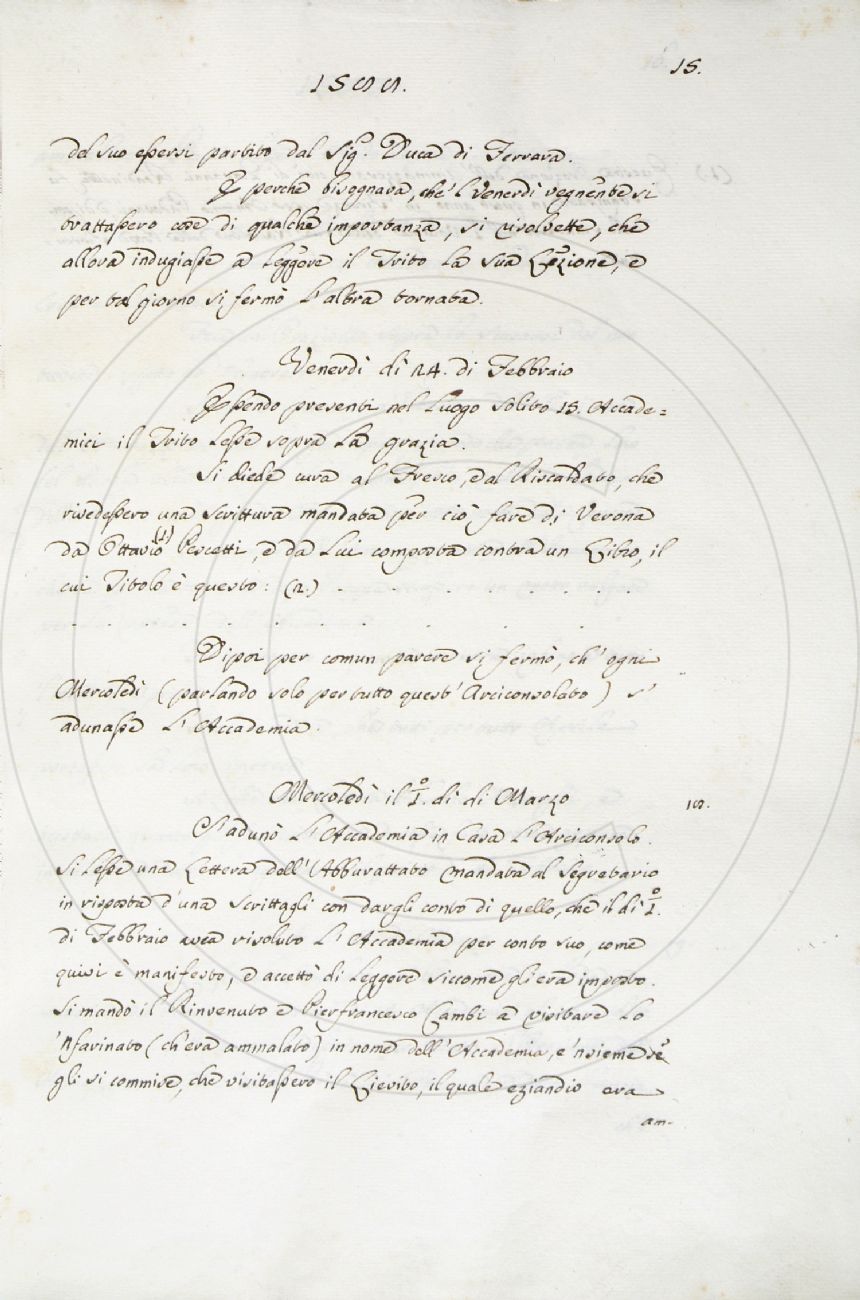 15.
1588.
del suo essersi partito dal Sig.r Duca di Ferrara.
E perchè bisognava, che 'l Venerdì vegnente si
trattassero cose di qualche importanza, si risolvette, che
allora indugiasse a leggere il Trito la sua Lezione, e
per tal giorno si fermò l'altra tornata.
Venerdì dì 24. di Febbraio
Essendo presenti nel Luogo solito 15. Accade=
mici il Trito lesse sopra la grazia.
Si diede cura al Fresco, e al Riscaldato, che
rivedessero una scrittura mandata per ciò fare di Verona
da Ottavio (1) Pescetti, e da lui composta contra un Libro, il
cui Titolo è questo: (2.) . . . . . .
. . . . . . . . .
Dipoi per comun parere si fermò, ch' ogni
Mercoledì (parlando solo per tutto quest' Arciconsolato) s'
adunasse l'Accademia.
Mercoledì il 1.º dì di Marzo
S'adunò l'Accademia in Casa l'Arciconsolo.
Si lesse una Lettera dell' Abburattato mandata al Segretario
in risposta d'una scrittagli con dargli conto di quello, che il dì 1.º
di Febbraio avea risoluto l'Accademia per conto suo, come
quivi è manifesto, e accettò di leggere siccome gli era imposto.
Si mandò il Rinvenuto e Pierfrancesco Cambi a visitare lo
'Nfarinato (ch'era ammalato) in nome dell'Accademia, e 'nsieme se
gli si commise, che visitassero il Lievito, il quale eziandio era
am-